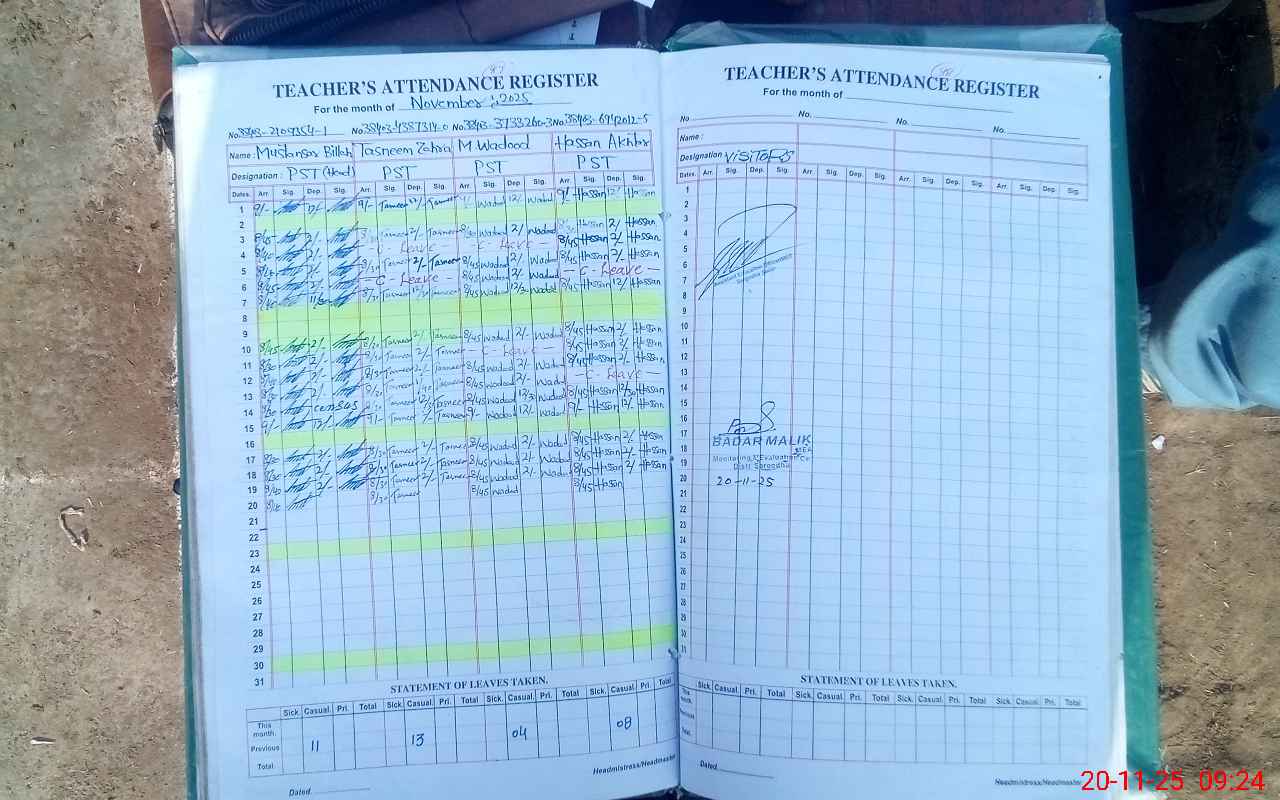 TEACHER'S ATTENDANCE REGISTER
For the month of November, 2025
Name: Mustansar Billah Tasneem Zahra M. Wadood Hassan Akhtar
Designation: PST (Head) PST PST PST
Dates. Arr. Sig. Dep. Sig. Arr. Sig. Dep. Sig. Arr. Sig. Dep. Sig. Arr. Sig. Dep. Sig.
1 9/- 12/- 9/- Tasneem 12/- Tasneem 9/- Wadood 12/- Wadood 9/- Hassan 12/- Hassan
2
3 8/45 2/- Tasneem 2/- Tasneem 8/45 Wadood 2/- Wadood Hassan 2/- Hassan
4 8/40 2/- - C - Leave - - C - Leave - 8/45 Hassan 2/- Hassan
5 2/- 8/30 Tasneem 2/- Tasneem 8/45 Wadood 2/- Wadood 8/45 Hassan 2/- Hassan
6 8/45 2/- - C - Leave - 8/45 Wadood 2/- Wadood - C - Leave -
7 8/30 Tasneem 12/30 Tasneem 8/45 Wadood 12/30 Wadood 8/45 Hassan 12/- Hassan
8
9
10 8/45 2/- 8/30 Tasneem 2/- Tasneem 8/45 Wadood 2/- Wadood 8/45 Hassan 2/- Hassan
11 8/30 2/- 8/30 Tasneem 2/- Tasneem - C - Leave - 8/45 Hassan 2/- Hassan
12 2/- 8/30 Tasneem 2/- Tasneem 8/45 Wadood 2/- Wadood 8/45 Hassan 2/- Hassan
13 2/- Tasneem Tasneem 8/45 Wadood 2/- Wadood - C - Leave -
14 census Tasneem Tasneem 8/45 Wadood 12/30 Wadood 8/45 Hassan 12/30 Hassan
15 9/- 12/- 9/- Tasneem Tasneem 9/- Wadood 12/- Wadood 9/- Hassan 12/- Hassan
16
17 8/30 2/- 8/30 Tasneem 2/- Tasneem 8/45 Wadood 2/- Wadood 8/45 Hassan 2/- Hassan
18 8/30 2/- 8/30 Tasneem 2/- Tasneem 8/45 Wadood 2/- Wadood 8/45 Hassan 2/- Hassan
19 2/- 8/30 Tasneem 2/- Tasneem 8/45 Wadood 2/- Wadood 8/45 Hassan 2/- Hassan
20 8/30 Tasneem 8/45 Wadood 8/45 Hassan
21
22
23
24
25
26
27
28
29
30
31
STATEMENT OF LEAVES TAKEN.
Sick. Casual. Pri. Total Sick. Casual. Pri. Total Sick. Casual. Pri. Total Sick. Casual. Pri. Total
This month.
Previous 11 13 04 08
Total
Dated. Headmistress/Headmaster
TEACHER'S ATTENDANCE REGISTER
For the month of
No. No. No. No.
Name :
Designation VISITORS
Dates. Arr. Sig. Dep. Sig. Arr. Sig. Dep. Sig. Arr. Sig. Dep. Sig. Arr. Sig. Dep. Sig.
1
2
3
4
5
6
7
8
9
10
11
12
13
14
15
16
17 BADAR MALIK
18 MEA
Monitoring & Evaluation
19 Distt. Sargodha
20 20-11-25
21
22
23
24
25
26
27
28
29
30
31
STATEMENT OF LEAVES TAKEN.
Sick. Casual. Pri. Total Sick. Casual. Pri. Total Sick. Casual. Pri. Total Sick. Casual. Pri. Total
This month.
Previous
Total
Dated. Headmistress/Headmaster
20-11-25 09:24